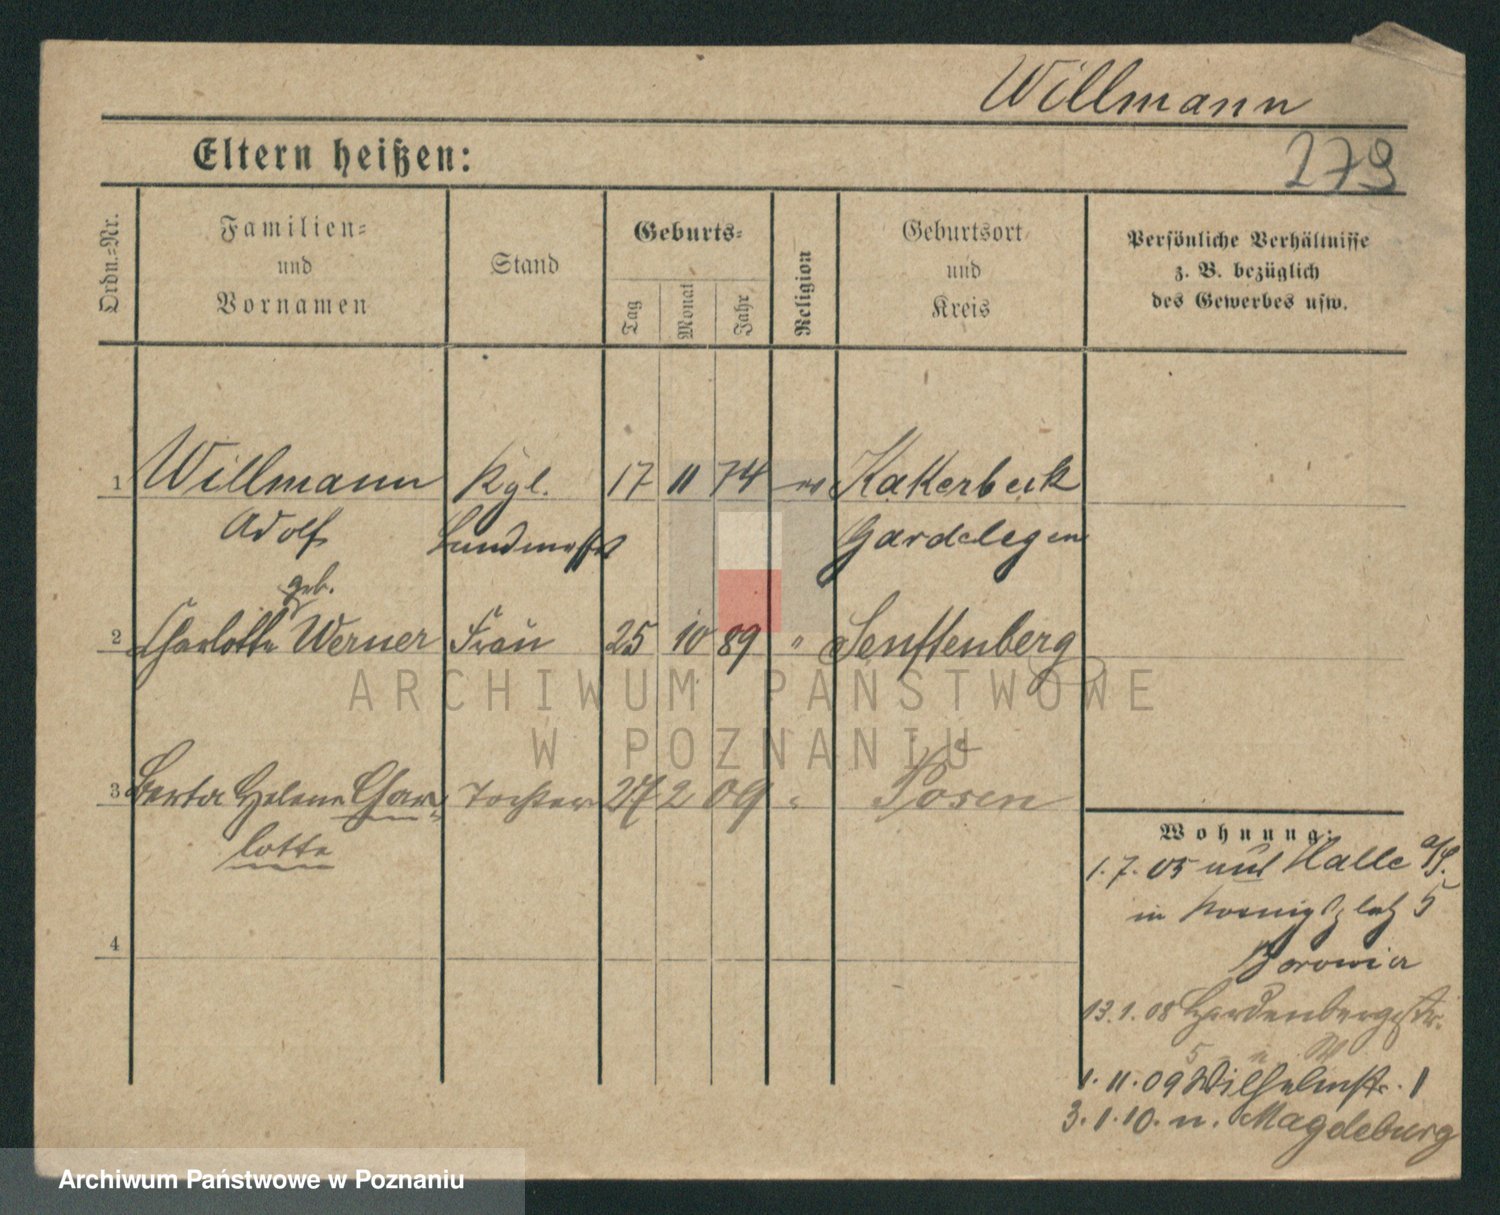 Willmann
Eltern heißen:
279
Ordn.-Nr.
Familien-
und
Vornamen
Stand
Geburts-
Tag
Monat
Jahr
Religion
Geburtsort
und
Kreis
Persönliche Verhältnisse
z. B. bezüglich
des Gewerbes usw.
1 Willmann Kgl. 17 11 74 ev Kakerbeck
Adolf Gardelegen
geb.
2 Charlotte Werner Frau 25 10 89 " Senftenberg
ARCHIWUM PAŃSTWOWE
W POZNANIU
3 Berta Helene Char- Tochter 27 2 09 " Posen
lotte
Wohnung:
1. 7. 05 aus Halle a/S.
in Koenigsplatz 5
4
13. 1. 08 Hardenbergstr.
1. 11. 09 Wilhelmstr. 1
3. 1. 10. n. Magdeburg
Archiwum Państwowe w Poznaniu